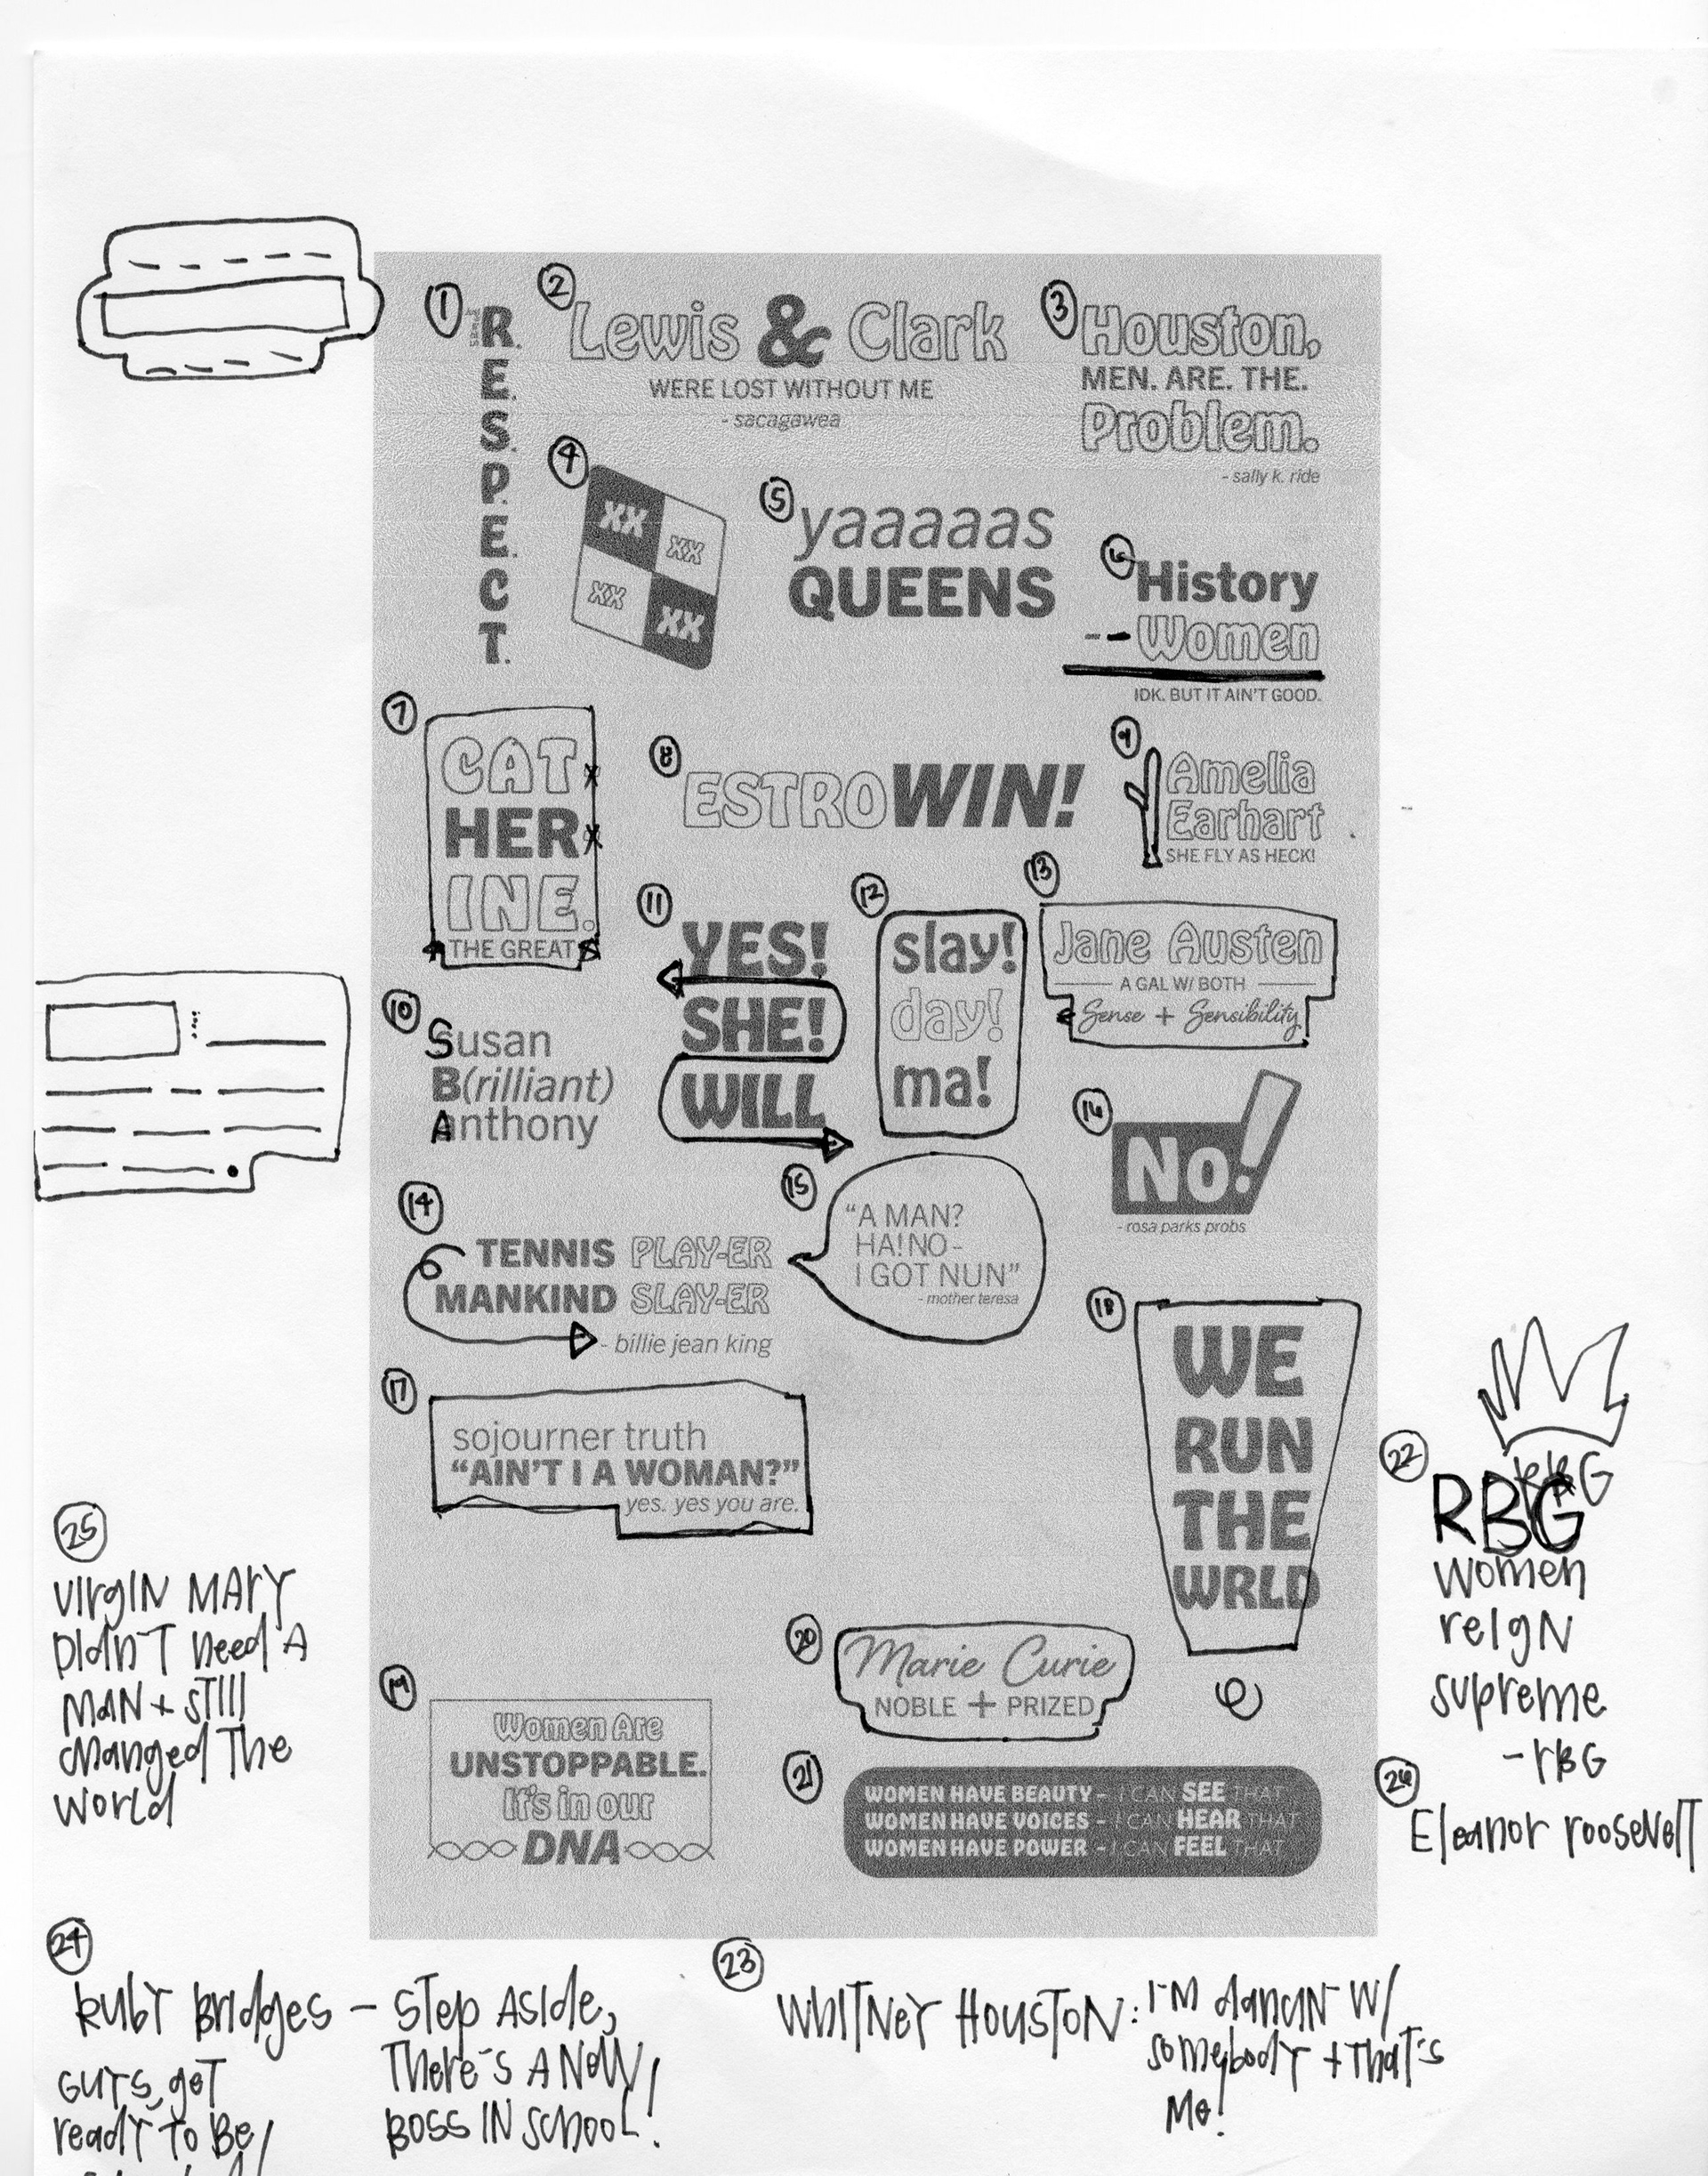 1
R.
E.
S.
P.
E.
C.
T.
2
Lewis & Clark
WERE LOST WITHOUT ME
- sacagawea
3
Houston,
MEN. ARE. THE.
Problem.
- sally k. ride
4
XX
XX
XX
XX
5
yaaaaas
QUEENS
6
History
-- Women
IDK. BUT IT AIN'T GOOD.
7
CAT
HER
INE.
THE GREAT
8
ESTROWIN!
9
Amelia
Earhart
SHE FLY AS HECK!
10
Susan
B(rilliant)
Anthony
11
YES!
SHE!
WILL
12
slay!
day!
ma!
13
Jane Austen
A GAL W/ BOTH
Sense + Sensibility
14
TENNIS PLAY-ER
MANKIND SLAY-ER
- billie jean king
15
“A MAN?
HA! NO-
I GOT NUN”
- mother teresa
16
No!
- rosa parks probs
17
sojourner truth
“AIN'T I A WOMAN?”
yes. yes you are.
18
WE
RUN
THE
WRLD
19
Women Are
UNSTOPPABLE.
It's in our
DNA
20
Marie Curie
NOBLE + PRIZED
21
WOMEN HAVE BEAUTY - I CAN SEE THAT
WOMEN HAVE VOICES - I CAN HEAR THAT
WOMEN HAVE POWER - I CAN FEEL THAT
22
RBG
RBG
women
reign
supreme
- rBG
23
WHITNEY HOUSTON: I'M dANCIN' W/
somebody + THAT'S
Me!
24
RUBY BRIdges - STep ASIde,
THere's A NeW
BOSS IN SCHOOL!
GUYS, geT
reAdY TO Be
25
VIrgIN MArY
DIdN'T Need A
MAN + STIll
cHANged THe
WOrLd
26
EleANOr rOOSeVelT